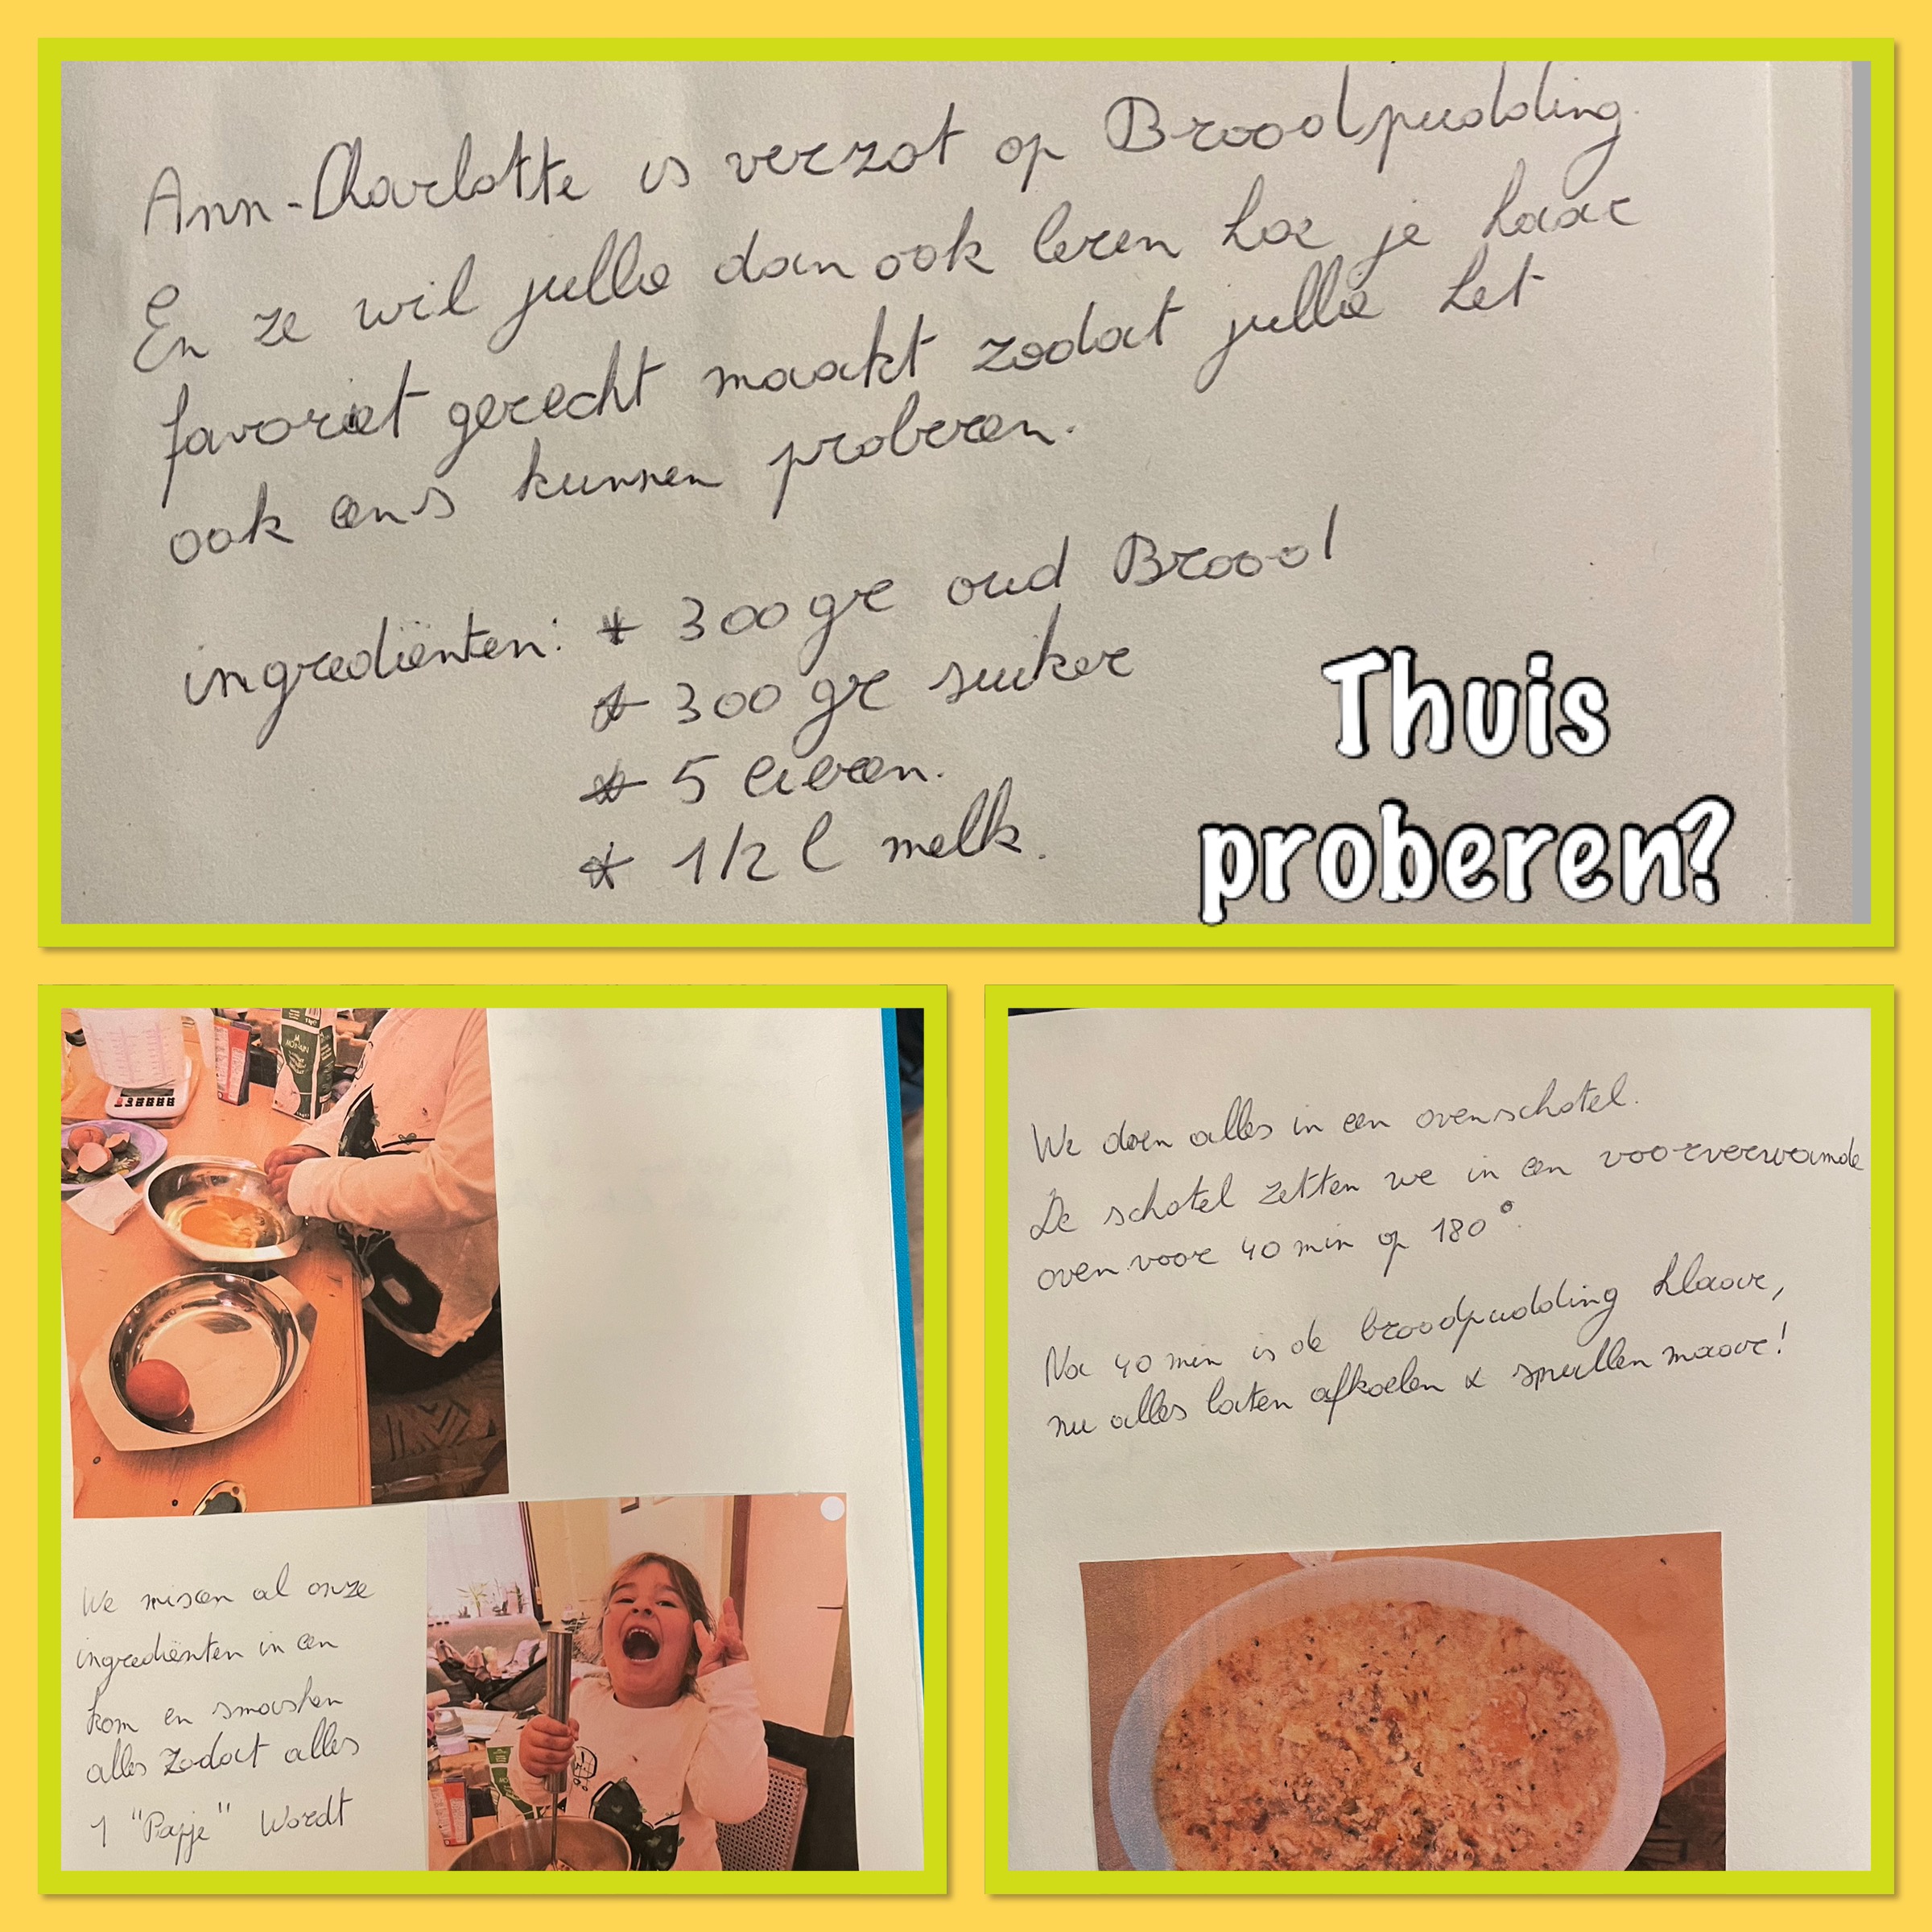 Ann-Charlotte is verzot op Broodpudding.
En ze wil jullie dan ook leren hoe je haar
favoriet gerecht maakt zodat jullie het
ook eens kunnen proberen.
ingrediënten: * 300 gr oud Brood
* 300 gr suiker
* 5 eieren.
* 1/2 l melk.
Thuis
proberen?
We mixen al onze
ingrediënten in een
kom en smashen
alles zodat alles
1 "Papje" Wordt
We doen alles in een ovenschotel.
De schotel zetten we in een voorverwamde
oven voor 40 min op 180°.
Na 40 min is de broodpudding klaar,
nu alles laten afkoelen & smullen maar!